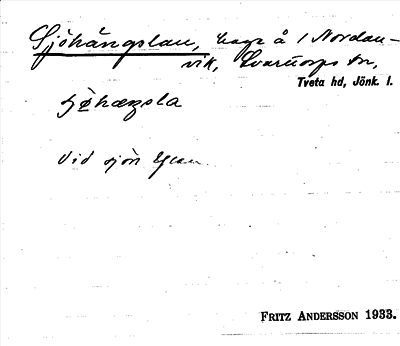 Sjöhängslan, hage å 1 Nordan-
vik, Svarttorps sn,
Tveta hd, Jönk. l.
sjöhæŋsla
Vid sjön
FRITZ ANDERSSON 1933.